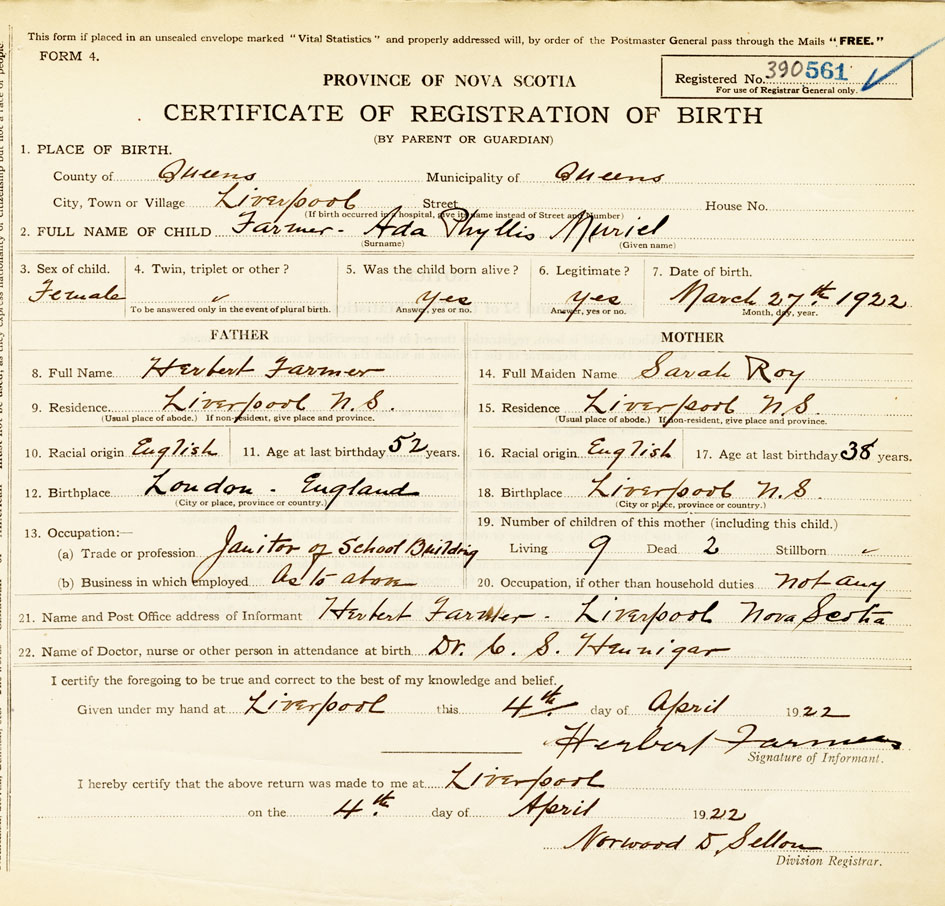 This form if placed in an unsealed envelope marked "Vital Statistics" and properly addressed will, by order of the Postmaster General pass through the Mails "FREE."
FORM 4.
Registered No. 390561
For use of Registrar General only.
PROVINCE OF NOVA SCOTIA
CERTIFICATE OF REGISTRATION OF BIRTH
(BY PARENT OR GUARDIAN)
1. PLACE OF BIRTH.
County of Queens Municipality of Queens
City, Town or Village Liverpool Street House No.
(If birth occurred in a hospital, give its name instead of Street and Number)
2. FULL NAME OF CHILD Farmer - Ada Phyllis Muriel
(Surname) (Given name)
3. Sex of child. 4. Twin, triplet or other? 5. Was the child born alive? 6. Legitimate? 7. Date of birth.
Female ✓ Yes Yes March 27th 1922
To be answered only in the event of plural birth. Answer, yes or no. Answer, yes or no. Month, day, year.
FATHER MOTHER
8. Full Name Herbert Farmer 14. Full Maiden Name Sarah Roy
9. Residence Liverpool N.S. 15. Residence Liverpool N.S.
(Usual place of abode.) If non-resident, give place and province. (Usual place of abode.) If non-resident, give place and province.
10. Racial origin English 11. Age at last birthday 52 years. 16. Racial origin English 17. Age at last birthday 38 years.
12. Birthplace London - England 18. Birthplace Liverpool N.S.
(City or place, province or country.) (City or place, province or country.)
13. Occupation:— 19. Number of children of this mother (including this child.)
(a) Trade or profession Janitor of School Building Living 9 Dead 2 Stillborn ✓
(b) Business in which employed As to above 20. Occupation, if other than household duties not any
21. Name and Post Office address of Informant Herbert Farmer - Liverpool Nova Scotia
22. Name of Doctor, nurse or other person in attendance at birth Dr. C. S. Hennigar
I certify the foregoing to be true and correct to the best of my knowledge and belief.
Given under my hand at Liverpool this 4th day of April 1922
Herbert Farmer
Signature of Informant.
I hereby certify that the above return was made to me at Liverpool
on the 4th day of April 1922
Norwood D. Sellon
Division Registrar.